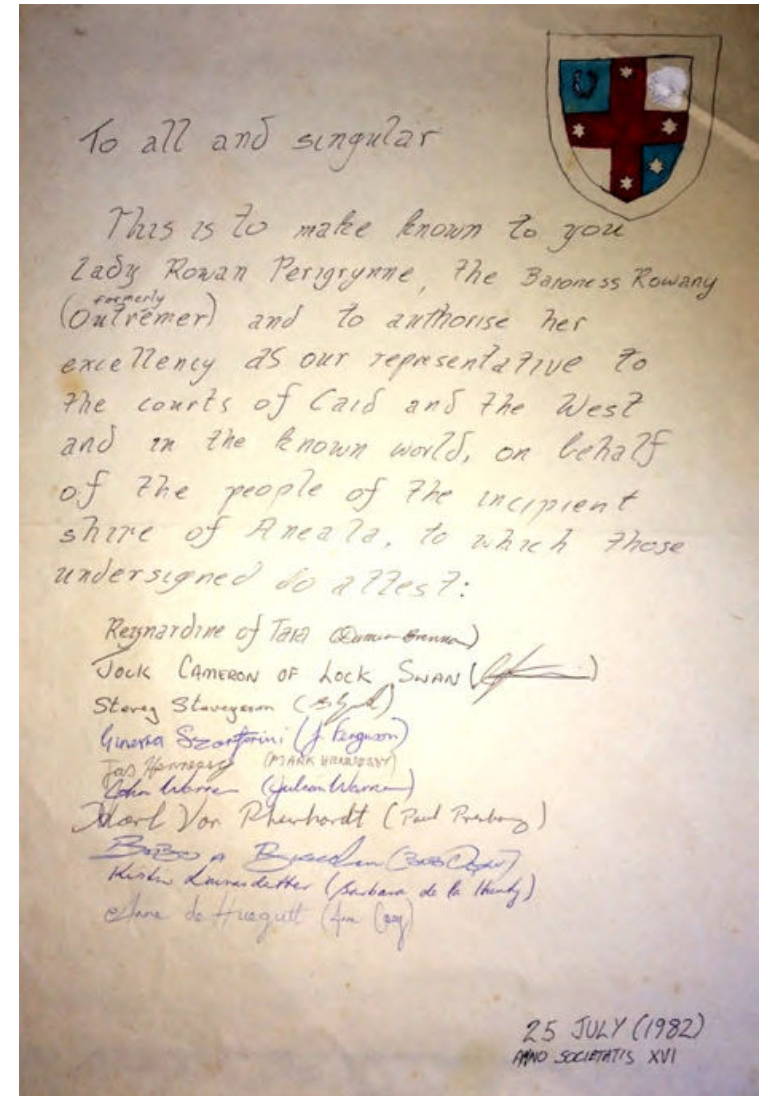 To all and singular
This is to make known to you
Lady Rowan Perigrynne, the Baroness Rowany
(formerly Outremer) and to authorise her
excellency as our representative to
the courts of Caid and the West
and in the known world, on behalf
of the people of the incipient
shire of Aneala, to which those
undersigned do attest:
Reynardine of Tara (Damien Brennan)
Jock Cameron of Lock Swan
Steveg Stavegeson
Ginevra (J Ferguson)
Jas Hennessy (Mark Hennessy)
John Warren (Julian Warner)
Karl Von Rheinhardt (Paul
Kirstin (Barbara de la
Anne de
25 JULY (1982)
ANNO SOCIETATIS XVI